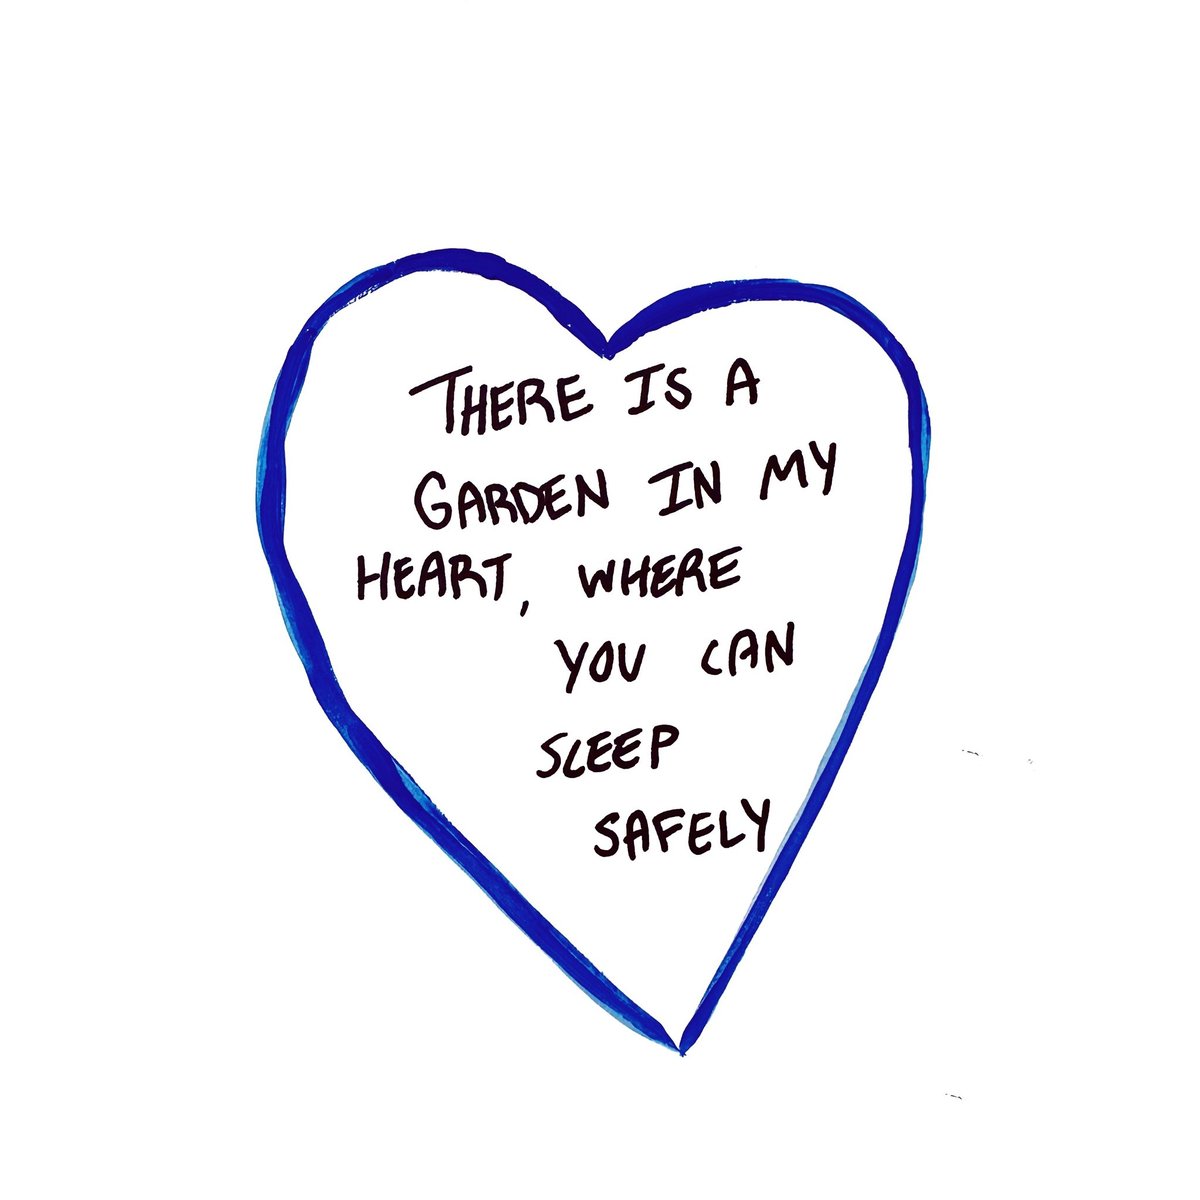 THERE IS A
GARDEN IN MY
HEART, WHERE
YOU CAN
SLEEP
SAFELY